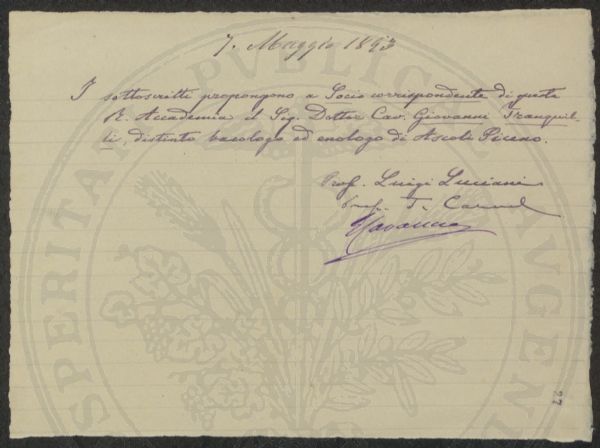 7. Maggio 1893
I sottoscritti propongono a Socio corrispondente di questa
R. Accademia il Sig. Dottor Cav. Giovanni Tranquil-
li, distinto bacologo ed enologo di Ascoli Piceno.
Prof. Luigi Luciani
Prof. T. Caruel
27
PROSPERITATI PUBLICAE AUGENDAE